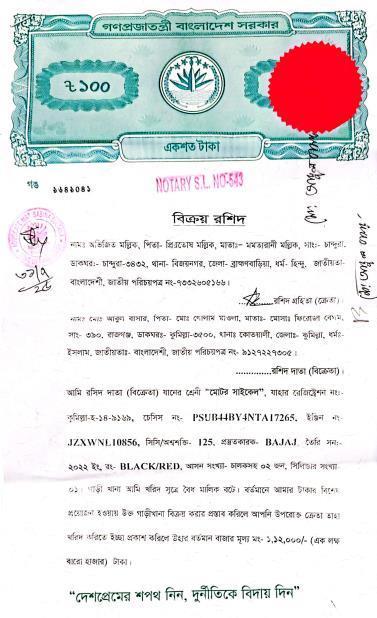 গণপ্রজাতন্ত্রী বাংলাদেশ সরকার
৳১০০
একশত টাকা
গঙ ৯৬৪৯০৪১
NOTARY S.L. NO-543
বিক্রয় রশিদ
নামঃ অভিজিত মল্লিক, পিতা- প্রিয়তোষ মল্লিক, মাতাঃ- মমতারানী মল্লিক, সাং- চান্দুরা,
ডাকঘর:- চান্দুরা-৩৪৩২, থানা- বিজয়নগর, জেলা- ব্রাহ্মণবাড়িয়া, ধর্ম- হিন্দু, জাতীয়তা-
বাংলাদেশী, জাতীয় পরিচয়পত্র নং-৭৩৩২৬০৫১৬৬।
রশিদ গ্রহিতা (ক্রেতা)।
নামঃ মোঃ আবুল বাসার, পিতা- মোঃ গোলাম মাওলা, মাতাঃ- মোসাঃ ফিরোজা বেগম,
সাং- ৩৯০, রাজগঞ্জ, ডাকঘরঃ- কুমিল্লা-৩৫০০, থানাঃ কোতয়ালী, জেলাঃ- কুমিল্লা, ধর্মঃ-
ইসলাম, জাতীয়তাঃ- বাংলাদেশী, জাতীয় পরিচয়পত্র নং- ৯১২৭২২৭৩০৫।
রশিদ দাতা (বিক্রেতা)।
আমি রসিদ দাতা (বিক্রেতা) যানের শ্রেনী "মোটর সাইকেল", যাহার রেজিষ্ট্রেশন নং-
কুমিল্লা-হ-১৪-৯১৬৯, চেসিস নং- PSUB44BY4NTA17265, ইঞ্জিন নং-
JZXWNL10856, সিসি/অশ্বশক্তি- 125, প্রস্তুতকারক- BAJAJ, তৈরি সন:-
২০২২ ইং, রং- BLACK/RED, আসন সংখ্যা- চালকসহ ০২ জন, সিলিন্ডার সংখ্যা-
০১। গাড়ী খানা আমি খরিদ সুত্রে বৈধ মালিক বটে। বর্তমানে আমার টাকার বিশেষ
প্রয়োজন হওয়ায় উক্ত গাড়ীখানা বিক্রয় করার প্রস্তাব করিলে আপনি উপরোক্ত ক্রেতা তাহা
খরিদ করিতে ইচ্ছা প্রকাশ করিলে উহার বর্তমান বাজার মূল্য মং- ১,১২,০০০/- (এক লক্ষ
বারো হাজার) টাকা।
"দেশপ্রেমের শপথ নিন, দুর্নীতিকে বিদায় দিন"